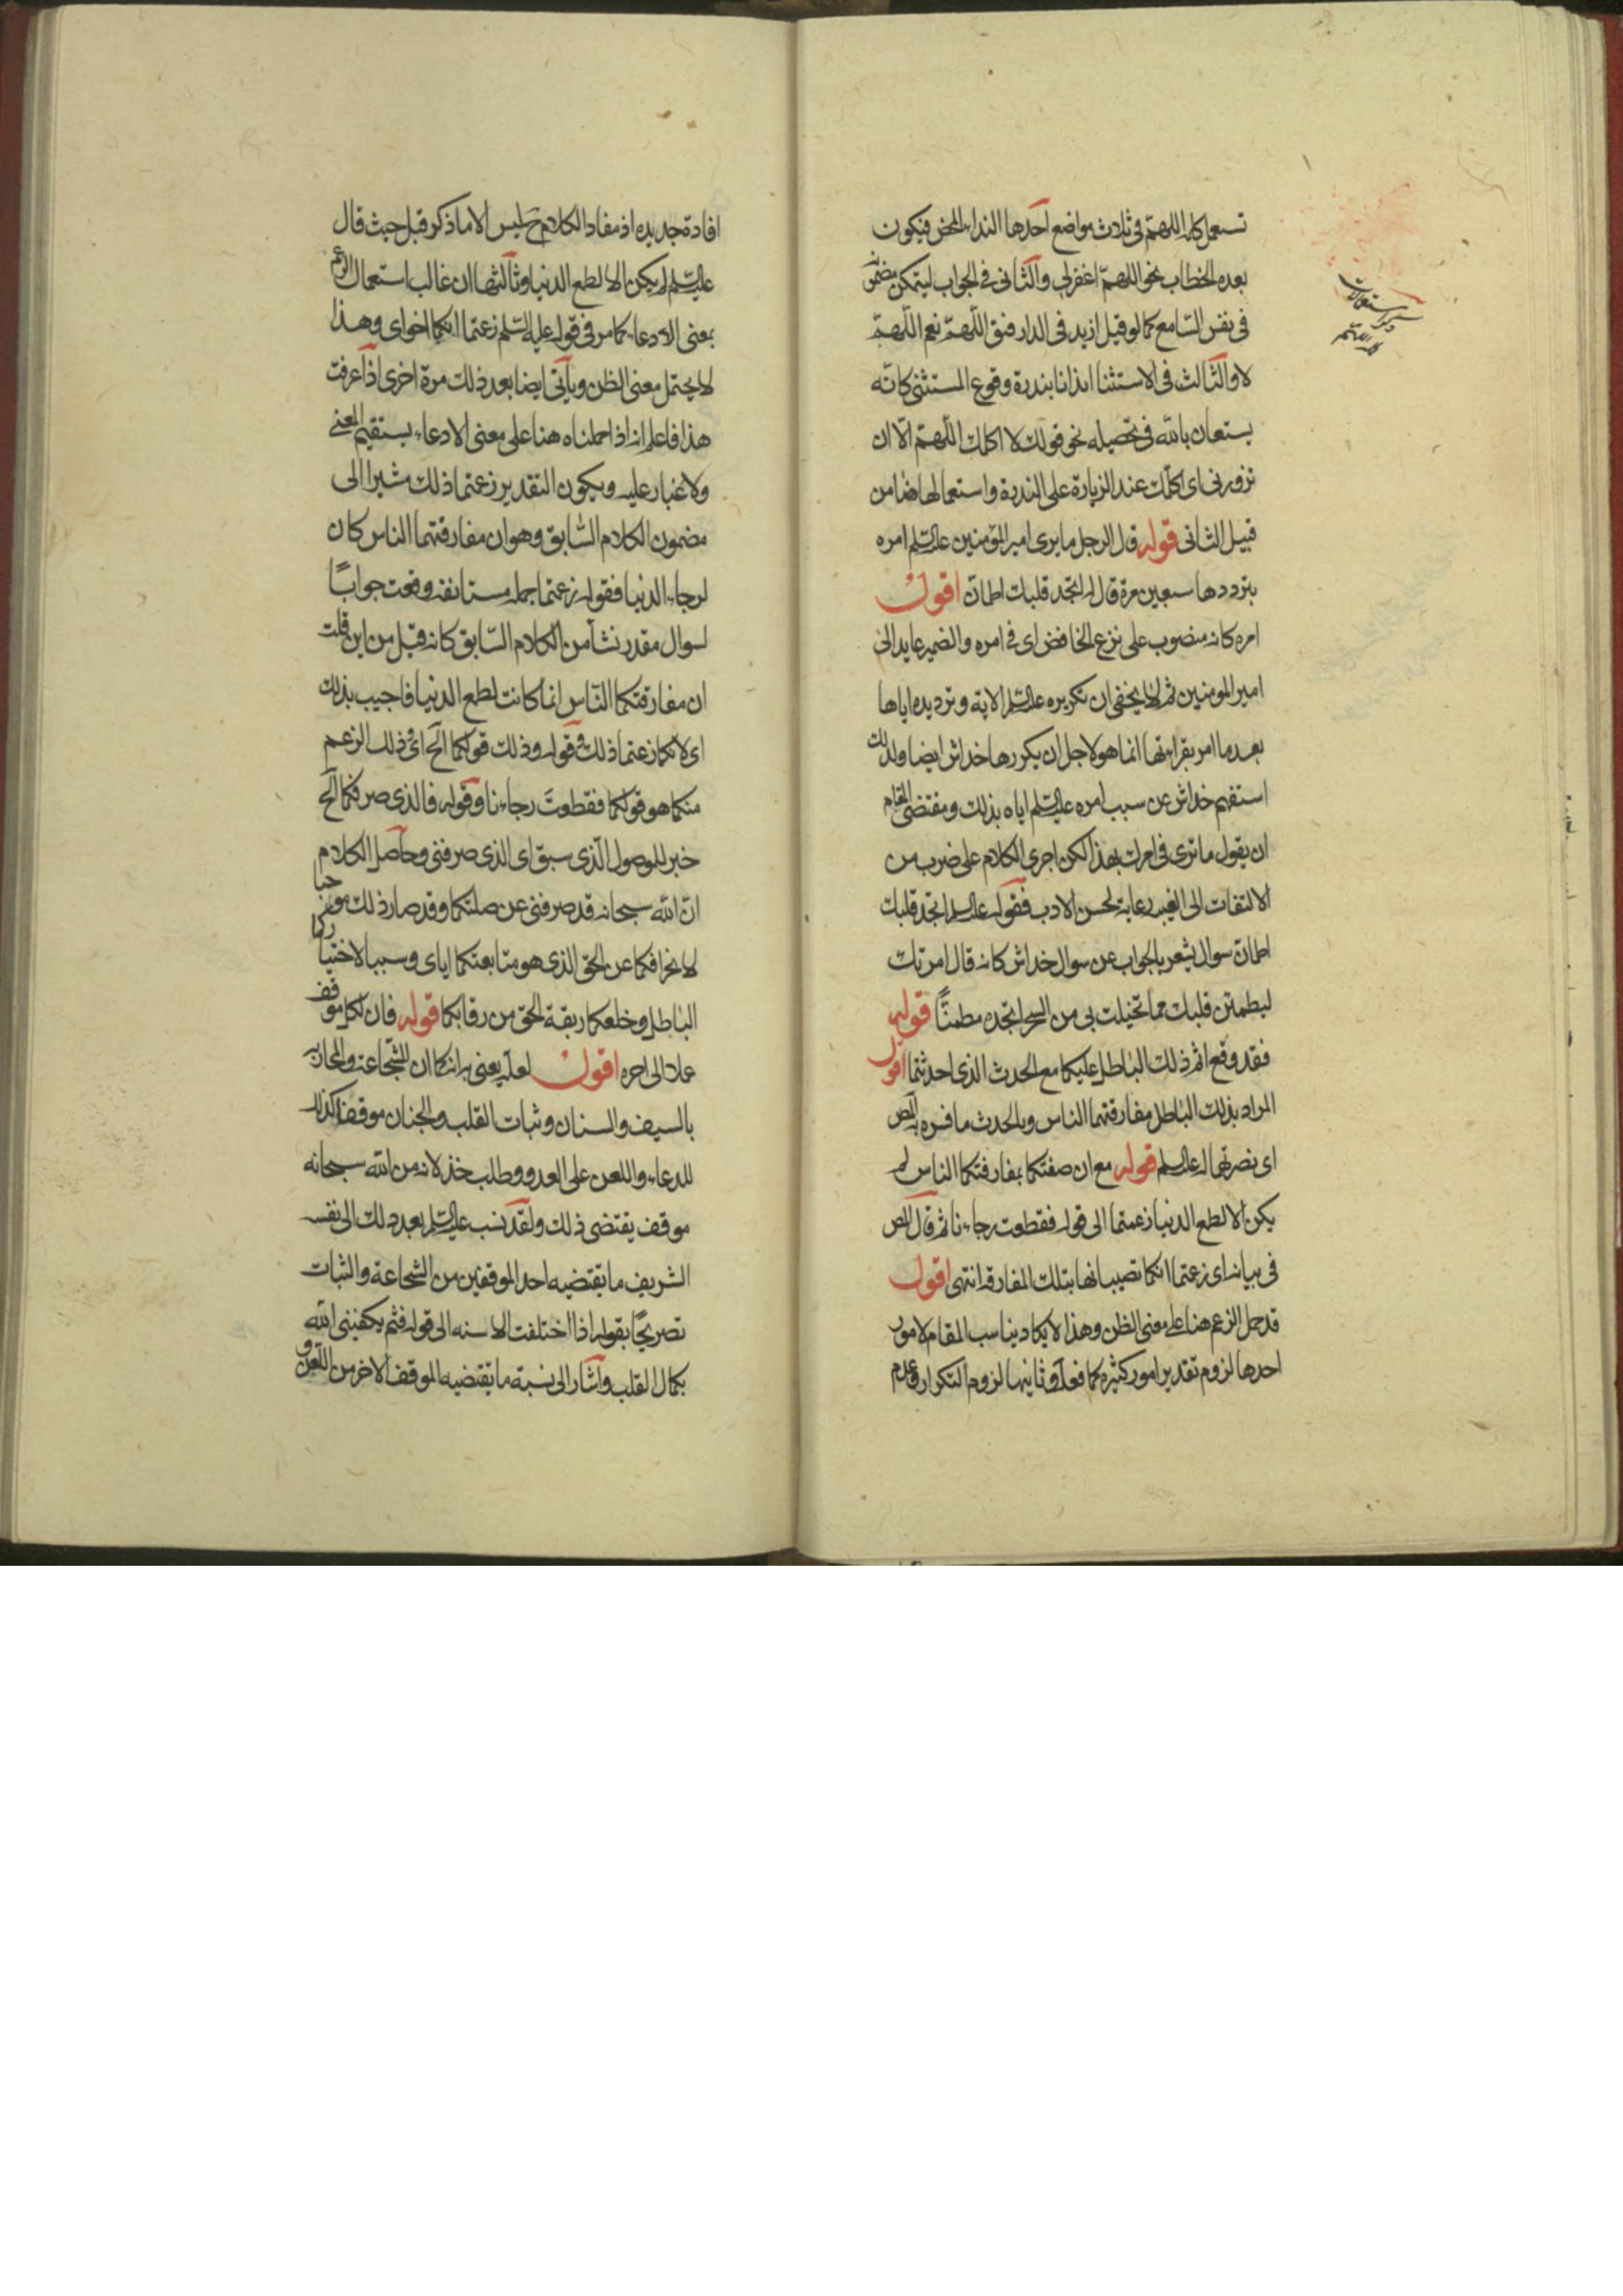 تستعمل كلمة اللهم فى ثلاث مواضع احدها النداء المحض فيكون
بعده الخطاب نحو اللهم اغفر لى والثانى فى الجواب ليتمكن مضمونه
فى نفس السامع كما لو قيل ازيد فى الدار فتق اللهم نعم اللهم
لا والثالث فى الاستثنا ايذانا بندرة وقوع المستثنى كانه
يستعان بالله فى تحصيله نحو قولك لا اكلمك اللهم الا ان
تزورنى اى اكلمك عند الزيارة على الندرة واستعمالها هنا من
قبيل الثانى قوله قال الرجل ما يرى امير المؤمنين عليه السلم امره
بترددها سبعين مرة قال له اتجد قلبك اطمان اقول
امره كانه منصوب على نزع الخافض اى فى امره والضمير عايد الى
امير المومنين ثم لا يخفى ان تكريره عليه السلم الاية وترديده اياها
بعد ما امر بقراءتها انما هو لاجل ان يكررها خداش ايضا ولذلك
استفهم خداش عن سبب امره عليه السلم اياه بذلك ومقتضى المقام
ان يقول ما ترى فى امرك بهذا لكن اجرى الكلام على ضرب من
الالتفات الى الغيبة رعاية لحسن الادب فقوله عليه السلم اتجد قلبك
اطمان سوال يشعر بالجواب عن سوال خداش كانه قال امرتك
ليطمئن قلبك مما تخيلت بى من السحر اتجده مطمئنا قوله
فقد وقع اثم ذلك الباطل عليكما مع الحدث الذى احدثتما اقول
المراد بذلك الباطل مفارقتهما الناس وبالحدث ما فسره المص
اى نصرتهما له عليه السلم قوله مع ان صفتكما بمفارقتكما الناس لم
يكن الا لطمع الدنيا زعمتما الى قوله فقطعت رجاءنا ثم قال المص
فى بيانه اى زعمتما انكما تصيبانها بتلك المفارقة انتهى اقول
قد حمل الزعم هنا على معنى الظن وهذا لا يكاد يناسب المقام لامور
احدها لزوم تقدير امور كثيرة كما فعله وثانيها لزوم التكرار وعدم
ذكر استعمالات
كلمة اللهم
افادة جديده اذ مفاد الكلام ح ليس الا ما ذكر قبل حيث قال
عليه السلم لم يكن الا لطمع الدنيا وثالثها ان غالب استعمال الزعم
بمعنى الادعاء كما مر فى قوله عليه السلم زعمتما انكما اخواى وهذا
لا يحتمل معنى الظن وياتى ايضا بعد ذلك مرة اخرى اذا عرفت
هذا فاعلم انه اذا حملناه هنا على معنى الادعاء يستقيم المعنى
ولا غبار عليه ويكون التقدير زعمتما ذلك مشيرا الى
مضمون الكلام السابق وهو ان مفارقتهما الناس كان
لرجاء الدنيا فقوله زعمتما جملة مستانفة وقعت جوابًا
لسوال مقدر نشأ من الكلام السابق كانه قيل من اين قلت
ان مفارقتكما الناس انما كانت لطمع الدنيا فاجيب بذلك
اى لانكما زعمتما ذلك وقوله وذلك قولكما الخ اى وذلك الزعم
منكما هو قولكما فقطعت رجاءنا وقوله فالذى صرفكما الخ
خبر للموصول الذى سبق اى الذى صرفنى وحاصل الكلام
ان الله سبحانه قد صرفنى عن صلتكما وقد صار ذلك موجبا
لانحرافكما عن الحق الذى هو متابعتكما اياى وسببا لاختياركما
الباطل وخلعكما ربقة الحق من رقابكما قوله فان لكل موقف
عملا الى اخره اقول لعله يعنى به انه كما ان للشجاعة والمحاربة
بالسيف والسنان وثبات القلب والجنان موقفا كذلك
للدعاء واللعن على العدو وطلب خذلانه من الله سبحانه
موقف يقتضى ذلك ولقد نسب عليه السلم بعد ذلك الى نفسه
الشريف ما يقتضيه احد الموقفين من الشجاعة والثبات
تصريحًا بقوله اذا اختلفت الاسنه الى قوله فثم يكفينى الله
بكمال القلب واشار الى نسبة ما يقتضيه الموقف الاخر من اللعن و